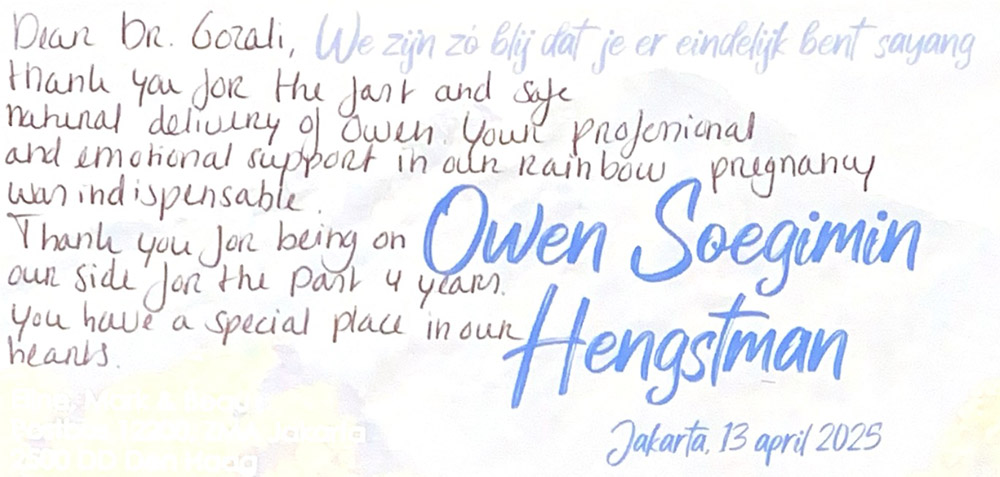 Dear Dr. Gozali,
We zijn zó blij dat je er eindelijk bent sayang
thank you for the fast and safe
natural delivery of Owen. Your profesional
and emotional support in our rainbow pregnancy
was indispensable.
Thank you for being on
our side for the past 4 years.
You have a special place in our
hearts.
Owen Soegimin
Hengstman
Jakarta, 13 april 2025